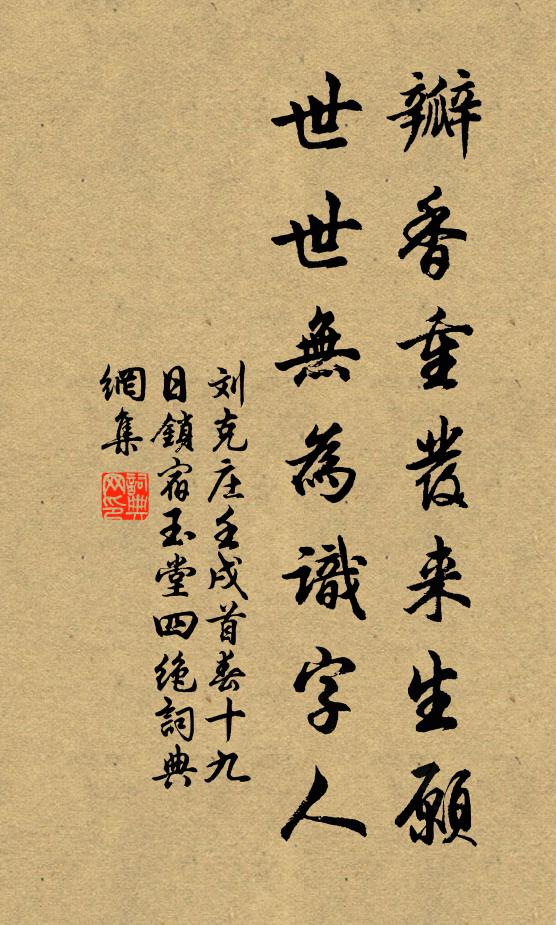 瓣香重發来生願
世世無為識字人
刘克庄壬戌首春十九
日鎖宿玉堂四绝詞典
網集
詞典網印